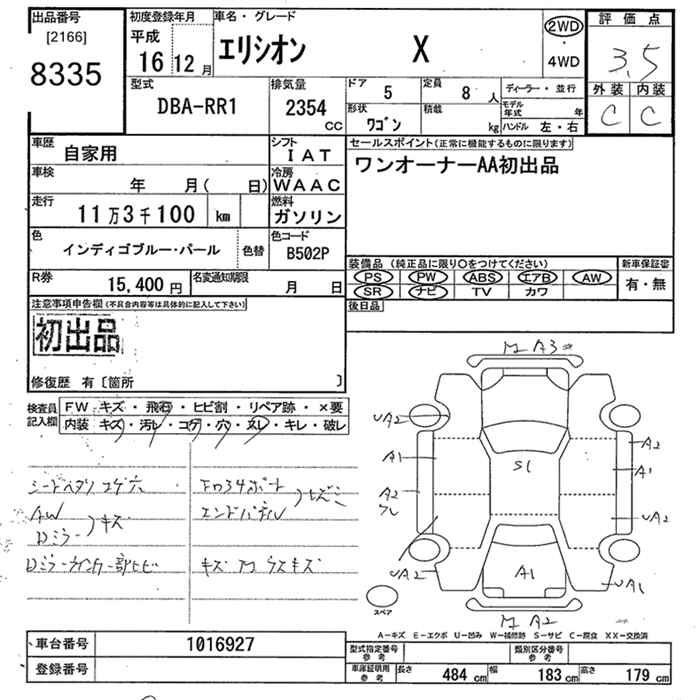 出品番号
[2166]
8335
初度登録年月
平成
16 12月
車名・グレード
エリシオン X
2WD
・
4WD
評価点
3.5
外装 内装
C C
型式
DBA-RR1
排気量
2354
CC
ドア
5
定員
8 人
ディーラー・並行
形状
ワゴン
積載
kg
モデル年式 年
ハンドル 左・右
車歴
自家用
シフト
IAT
車検
年 月( 日)
冷房
WAAC
走行
11万3千100 km
燃料
ガソリン
色
インディゴブルー・パール
色替
色コード
B502P
R券
15,400 円
名変通知期限
月 日
セールスポイント(正常に機能するものに限ります)
ワンオーナーAA初出品
装備品 (純正品に限り○をつけてください)
PS PW ABS エアB AW
SR ナビ TV カワ
新車保証書
有・無
後日品
注意事項申告欄(不具合内容等は具体的に記入して下さい)
初出品
修復歴 有〔箇所 〕
検査員記入欄
FW キズ・飛石・ヒビ割・リペア跡・×要
内装 キズ・汚レ・コゲ・穴・スレ・キレ・破レ
AW
Dミラー
キズ
M A3
UA2
A1
A2
UA2
S1
A2
A1
UA2
A1
UA1
M A2
スペア
A―キズ E―エクボ U―凹み W―補修跡 S―サビ C―腐食 XX―交換済
車台番号
1016927
登録番号
型式指定番号
参考
類別区分番号
参考
車庫証明用
参考
長さ 484 cm 幅 183 cm 高さ 179 cm